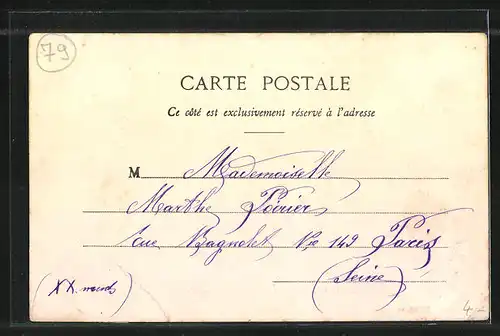 79
CARTE POSTALE
Ce côté est exclusivement réservé à l'adresse
M Mademoiselle
Marthe Poirier
rue Bagnolet No 149 Paris
(Seine)
(XX
4-